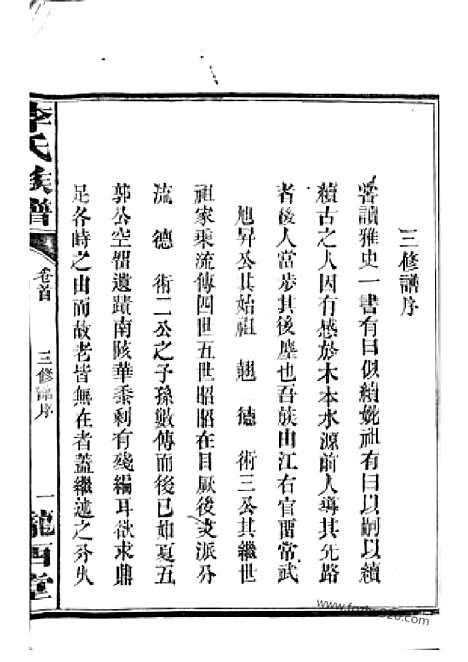 三修譜序
嘗讀雅史一書有曰似續妣祖有曰以嗣以續
續古之人因有感於木本水源前人導其先路
者後人當步其後塵也吾族由江右官畱當武
旭昇公其始祖 翹 德 術三公其繼世
祖家乘流傳四世五世昭昭在目厥後支派分
流 德 術二公之子孫數傳而後已如夏五
郭公空畱遺蹟南陔華黍剩有殘編耳欲求鼎
足各時之由而故老皆無在者蓋繼述之旁失
李氏族譜
卷首
三修譜序
一
隴西堂